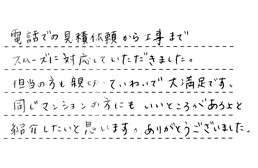 電話での見積依頼から工事まで
スムーズに対応していただきました。
担当の方も親切、ていねいで大満足です。
同じマンションの方にもいいところがあるよと
紹介したいと思います。ありがとうございました。